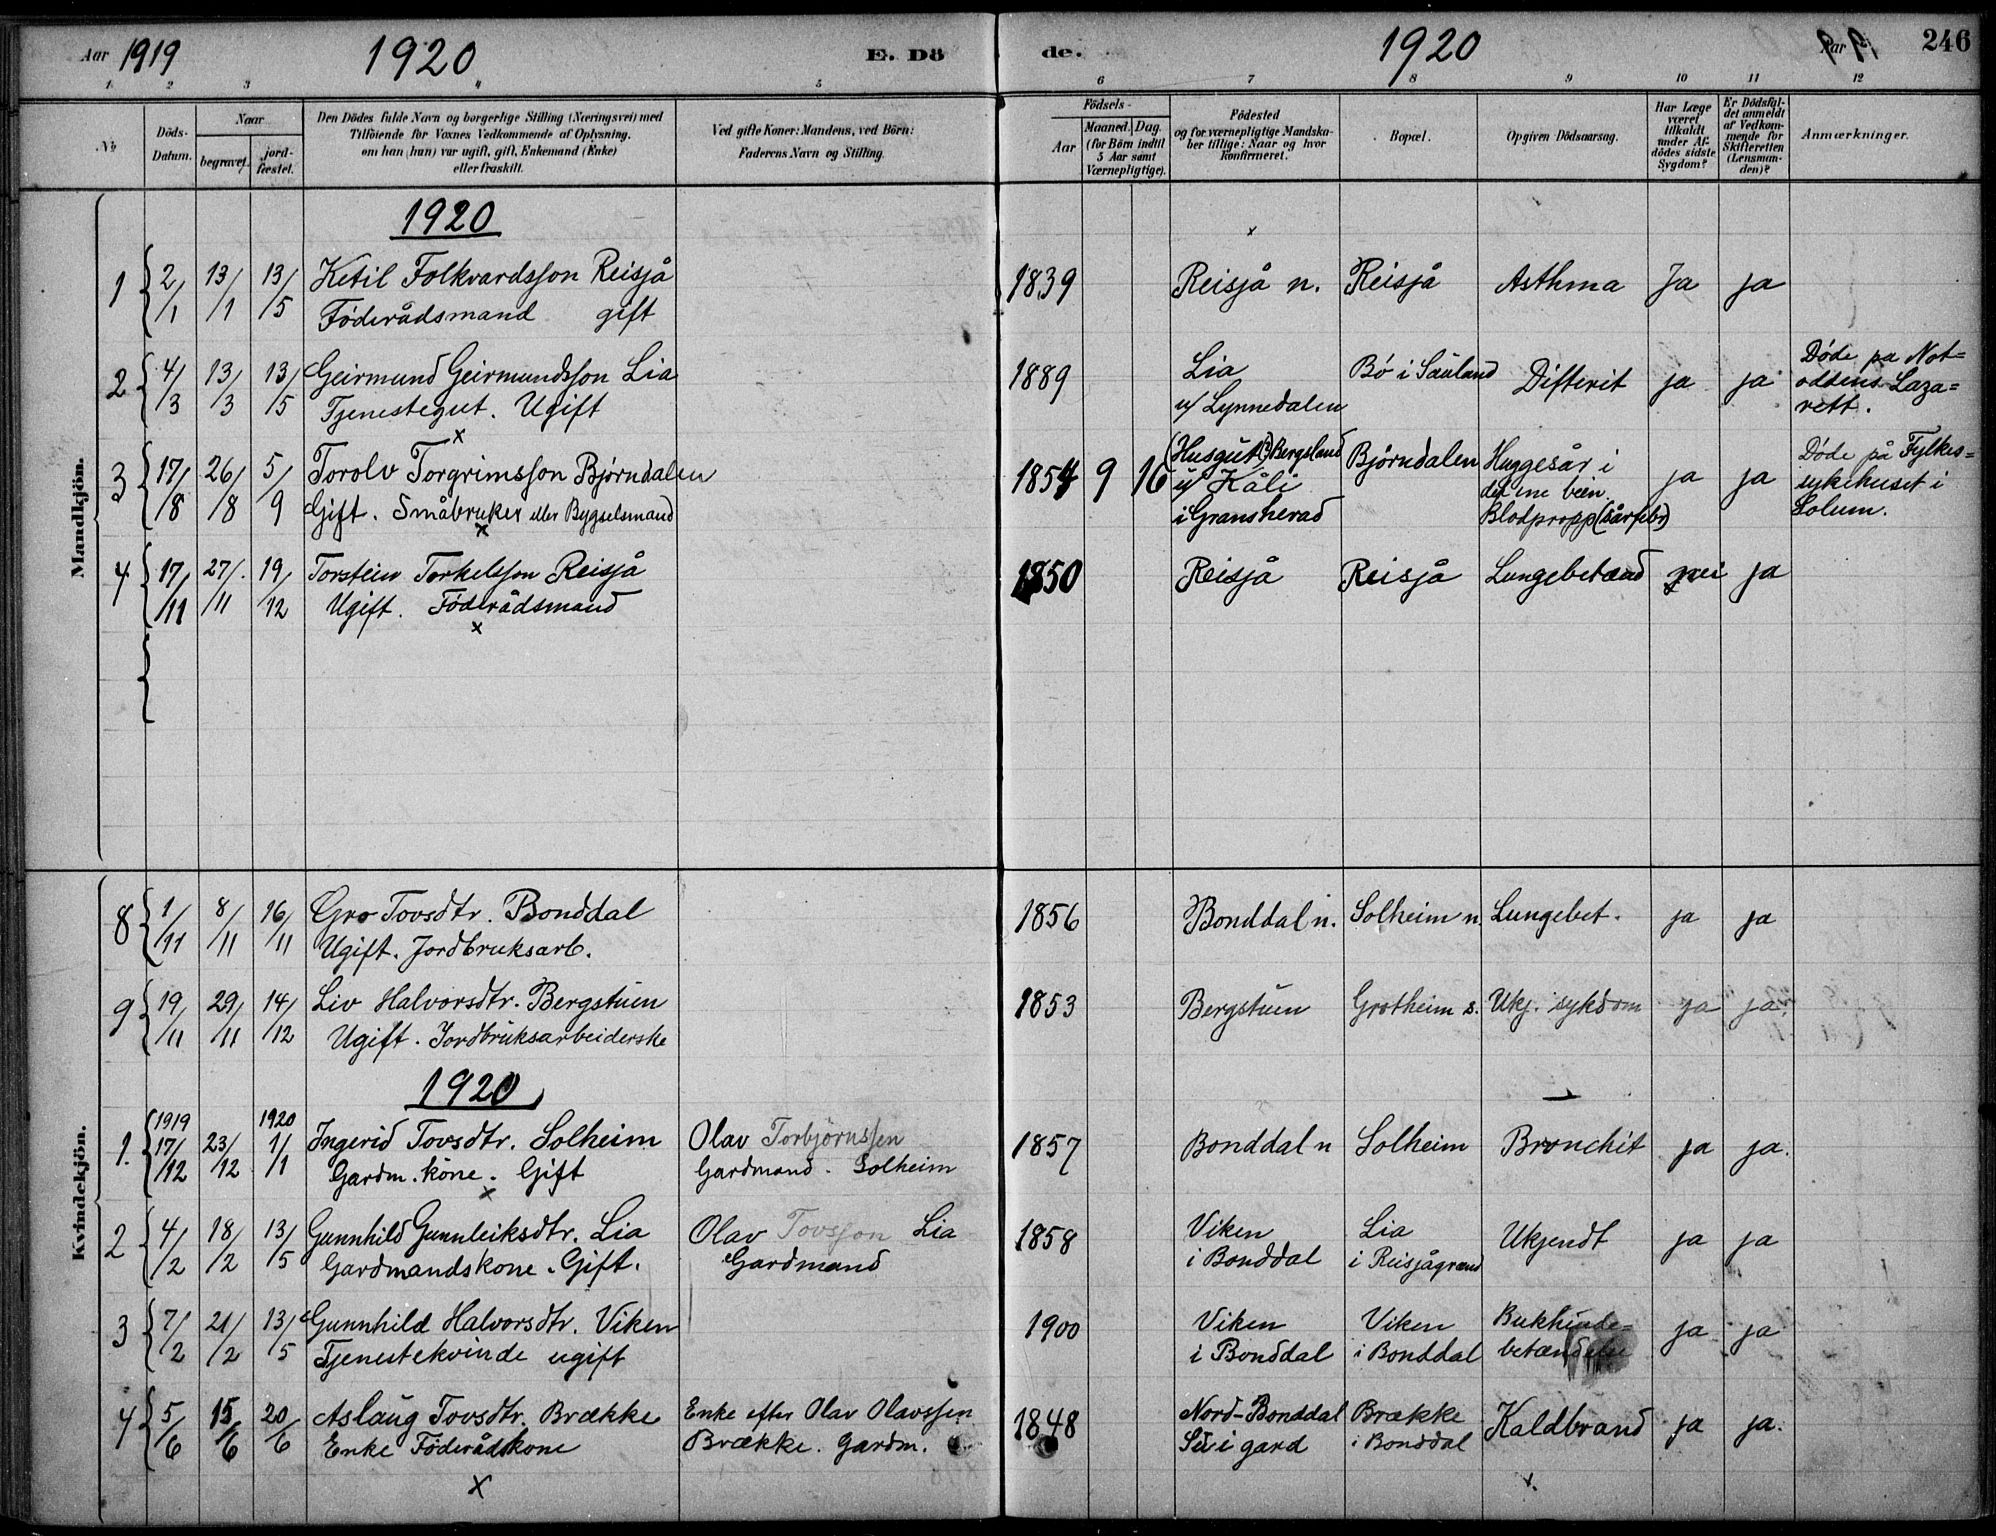 Aar 1919 1920 E. Dö de. 1920 Aar 1919 246
1 2 3 4 5 6 7 8 9 10 11 12
No
Döds-
Datum.
Naar
begravet.
jord-
fæstet.
Den Dödes fulde Navn og borgerlige Stilling (Næringsvei) med
Tilföiende for Voxnes Vedkommende af Oplysning,
om han (hun) var ugift, gift, Enkemand (Enke)
eller fraskilt.
Ved gifte Koner: Mandens, ved Börn:
Faderens Navn og Stilling.
Födsels-
Aar
Maaned. Dag.
(for Börn indtil
5 Aar samt
Værnepligtige).
Födested
og for værnepligtige Mandska-
ber tillige: Naar og hvor
konfirmeret.
Bopæl.
Opgiven Dödsaarsag.
Har Læge
været
tilkaldt
under Af-
dödes sidste
Sygdom?
Er Dödsfal-
det anmeldt
af Vedkom-
mende for
Skifteretten
(Lensman-
den)?
Anmærkninger.
Mandkjön.
1920
1 2/1 13/1 13/5 Ketil Folkvardsson Reisjå 1839 Reisjå n. Reisjå Asthma Ja ja
Föderådsmand gift
2 4/3 13/3 13/5 Geirmund Geirmundsson Lia 1889 Lia Bö i Sauland Difterit ja ja Döde pa Not=
Tjenestegut. Ugift u/ Lynnedalen oddens Laza=
x rett.
3 17/8 26/8 5/9 Torolv Torgrimsson Björndalen 1854 9 16 (Husgut(?) Bergsland Björndalen Huggesår i ja ja Döde på Fylkes=
Gift. Småbruker eller Bygselsmand u/ Kåli det ene bein. sykehuset i
x i Gransherad Blodpropp (sårfeber) Solum.
4 17/11 27/11 19/12 Torstein Torkelsson Reisjå 1850 Reisjå Reisjå Lungebetænd nei ja
Ugift. Föderådsmand
x
Kvindekjön.
8 1/11 8/11 16/11 Gro Tovsdtr. Bonddal 1856 Bonddal n. Solheim n. Lungebet. ja ja
Ugift. Jordbruksarb.
9 19/11 29/11 14/12 Liv Halvorsdtr. Bergstuen 1853 Bergstuen Grotheim s. Ukj. sykdom ja ja.
Ugift. Jordbruksarbeiderske
1920
1919 1920
1. 17/12 23/12 1/1 Ingerid Tovsdtr. Solheim Olav Torbjörnssen 1857 Bonddal n Solheim Bronchit ja ja.
Gardm. kone. Gift Gardmand. Solheim
x
2 4/2 18/2 13/5 Gunnhild Gunnleiksdtr. Lia Olav Tovsson Lia 1858 Viken Lia Ukjendt ja ja
Gardmandskone. Gift. Gardmand i Bonddal i Reisjågrænd
3 7/2 21/2 13/5 Gunnhild Halvorsdtr. Viken 1900 Viken Viken Bukhinde= ja ja
Tjenestekvinde ugift i Bonddal i Bonddal betændelse
4 5/6 15/6 20/6 Aslaug Tovsdtr. Brække Enke efter Olav Olavssen 1848 Nord-Bonddal Brække Kaldbrand ja ja.
Enke Föderådskone Brække. Gardm. i gard i Bonddal
x